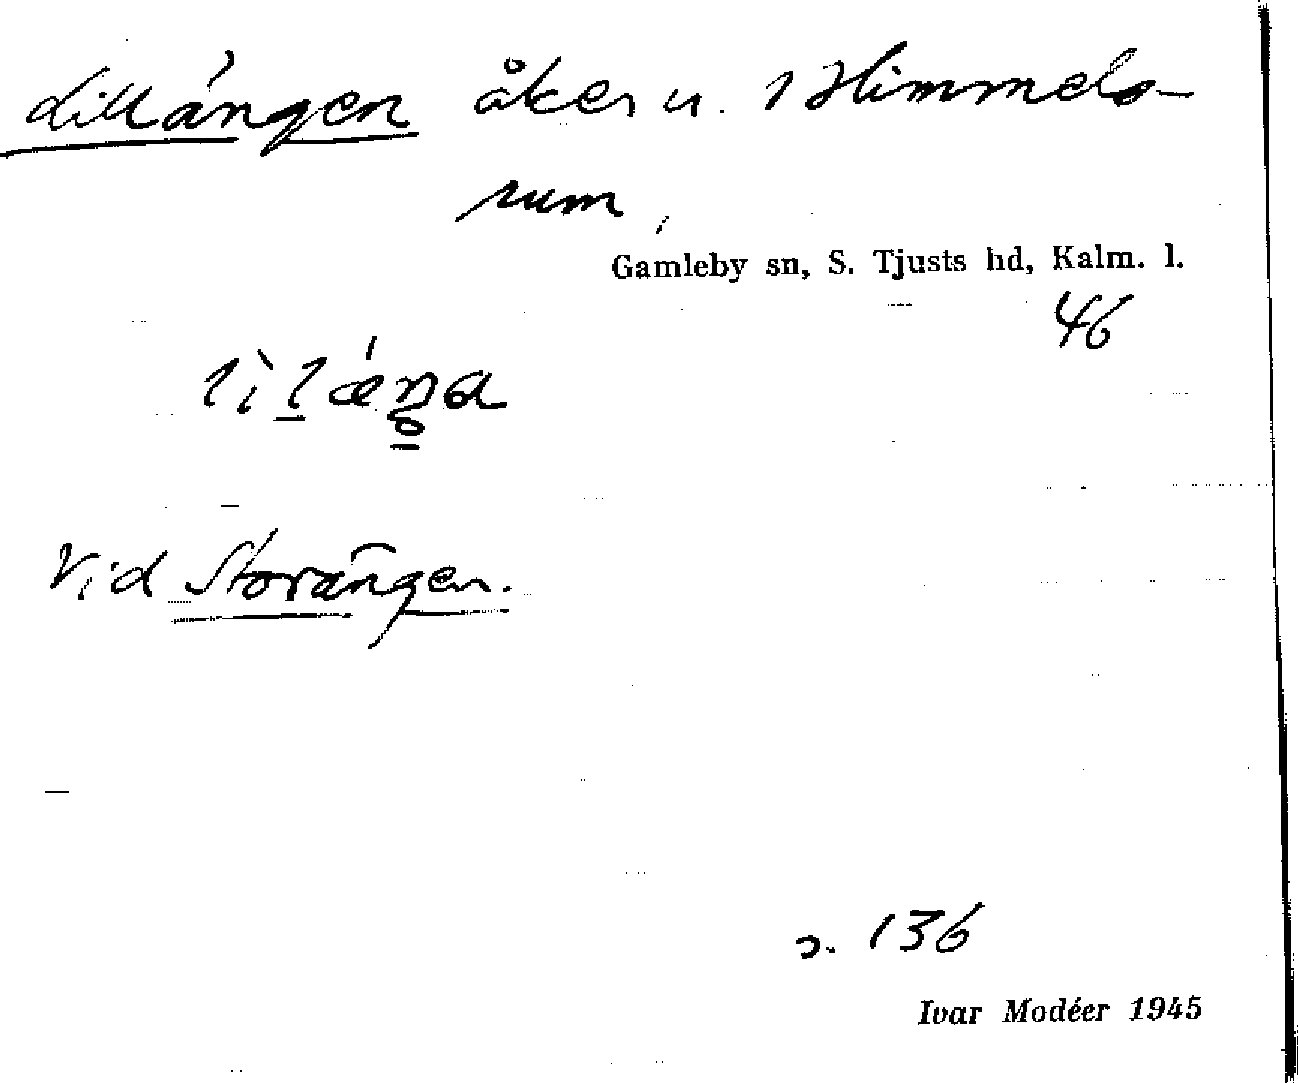 Lillängen åker u. 1 Himmels-
rum,
Gamleby sn, S. Tjusts hd, Kalm. l.
46
Vid Storängen.
s. 136
Ivar Modéer 1945